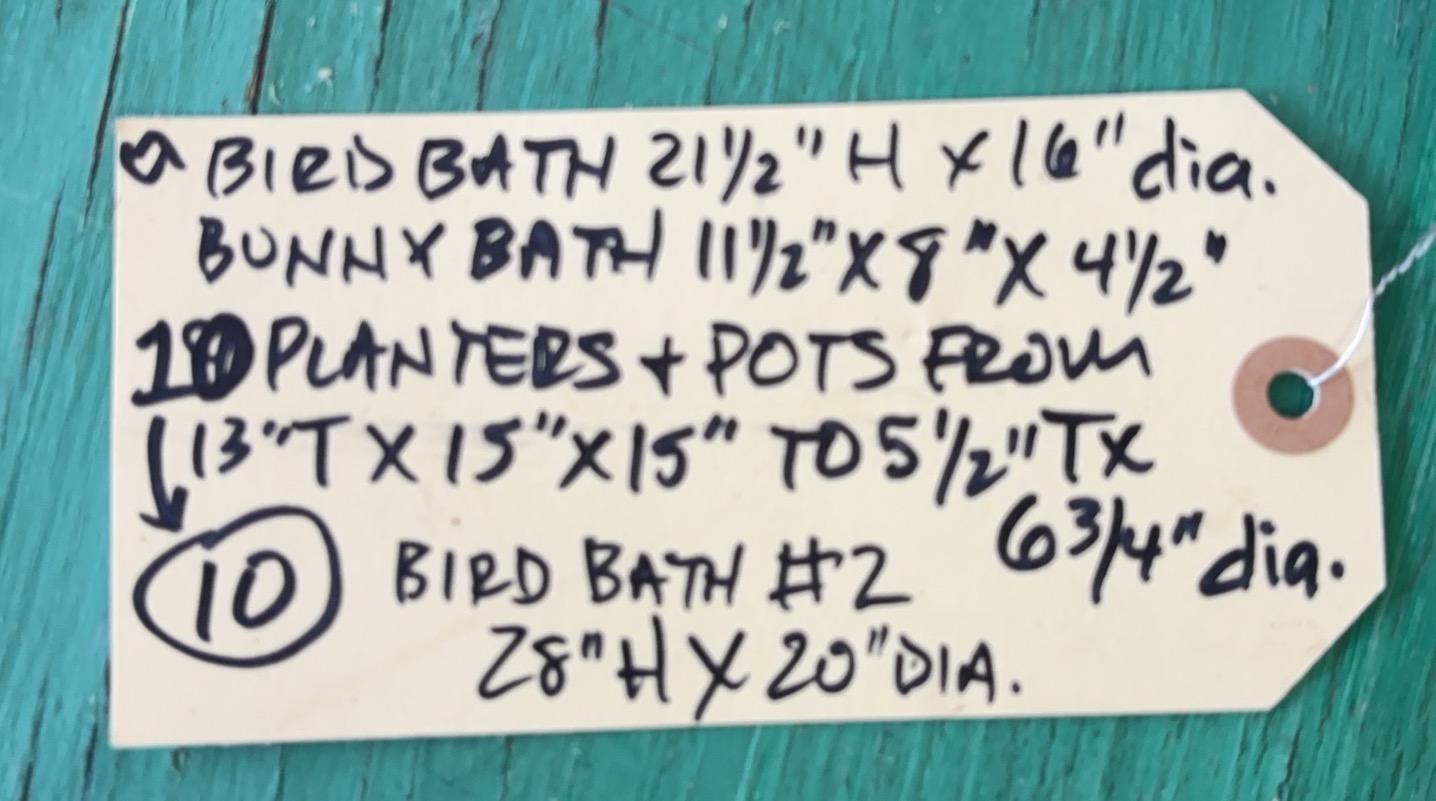 BIRD BATH 21 1/2" H X 16" dia.
BUNNY BATH 11 1/2" X 8" X 4 1/2"
10 PLANTERS + POTS FROM
↓ 13" T X 15" X 15" TO 5 1/2" T X
6 3/4" dia.
10 BIRD BATH #2
28" H X 20" DIA.